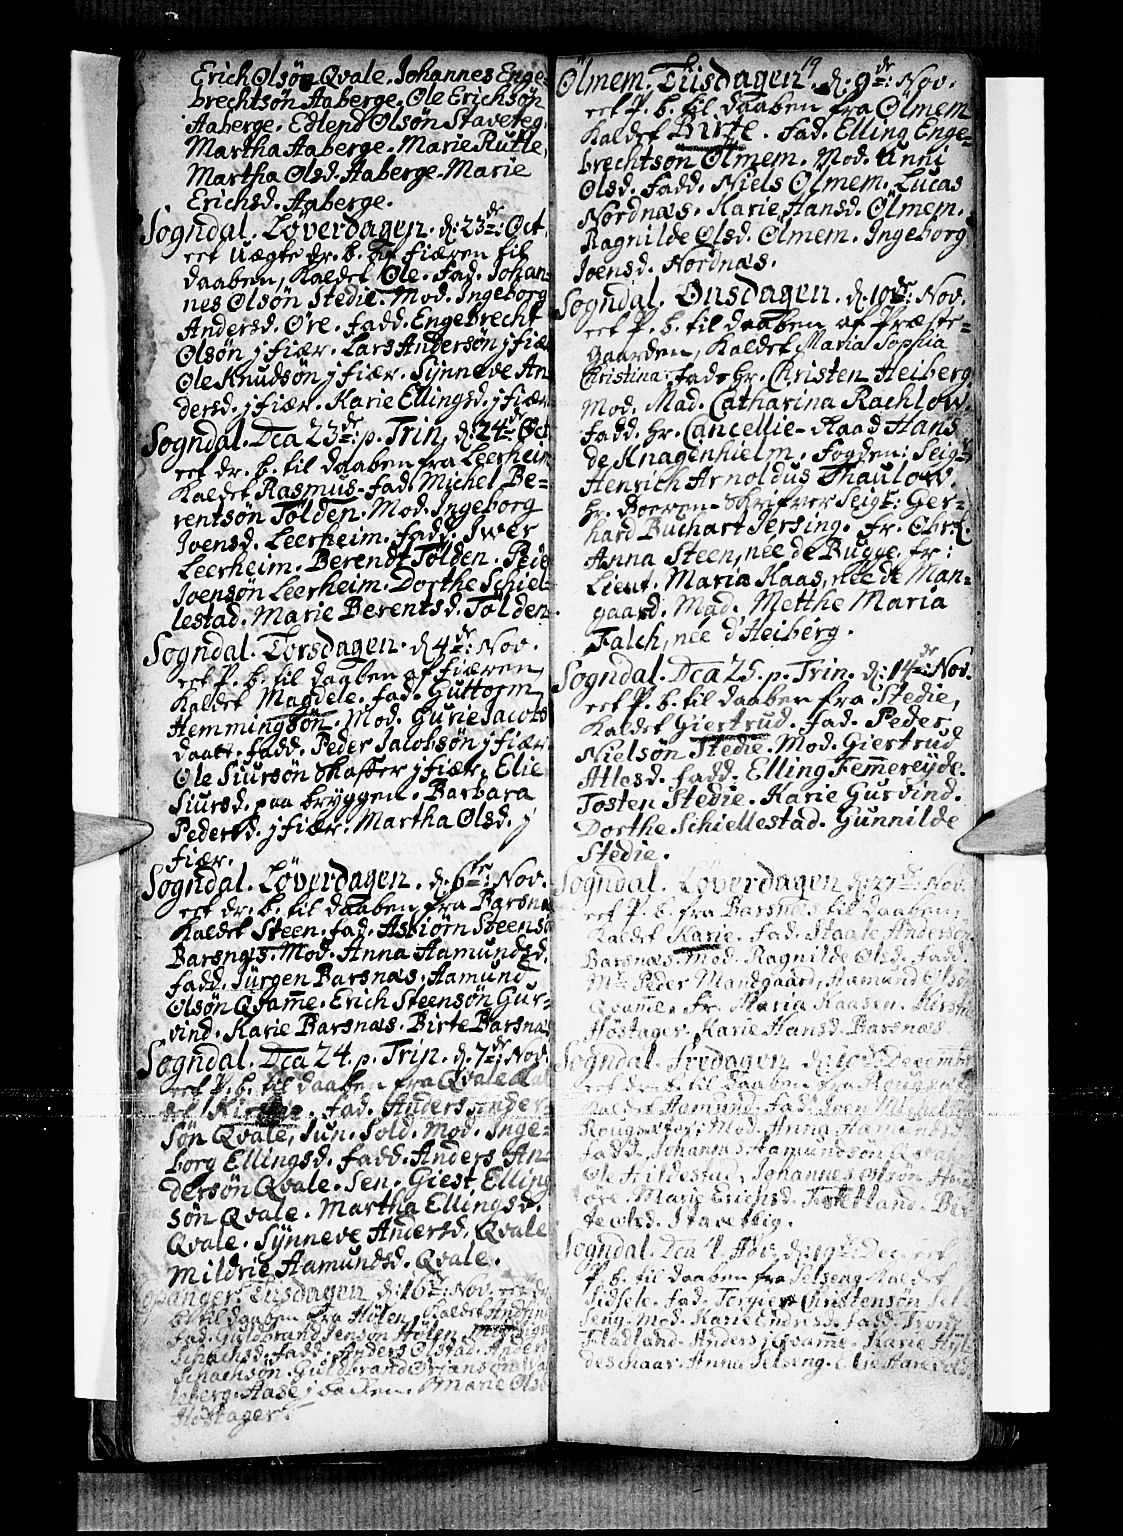 Erich Olsøn Qvale. Johannes Enge-
brechtsøn Aaberge. Ole Erichsøn
Aaberge. Edlend Olsøn Staveteg.
Martha Aaberge. Marie Rutle,
Martha Olsd. Aaberge. Marie
Erichsd. Aaberge.
Sogndal. Løverdagen. d: 23de: Oct.
eet uægte dr. b. af fiæren til
daaben, kaldet Ole. fad. Johan-
nes Olsøn Stedie. Mod. Ingeborg
Andersd. Øre. fadd. Engebrecht
Olsøn j fiær. Lars Andersøn j fiær
Ole Knudsøn j fiær. Synneve An
dersd. j fiær. Karie Ellingsd. j fiær
Sogndal. Dca 23de: p. Trin, d: 24de: Oct
eet dr. b. til daaben fra Leerheim
kaldet Rasmus. fad. Michel Be-
rentsøn Tolden. Mod. Ingeborg
Joensd. Leerheim. fadd. Iwer
Leerheim. Berendt Tolden. Peie
Joensøn Leerheim. Dorthe Schiel-
lestad. Marie Berentsd. Tolden.
Sogndal. Torsdagen. d: 4de: Nov.
eet P. b. til daaben af fiæren,
kaldet Magdele. fad. Guttorm
Hemmingsøn. Mod. Gurie Jacobs
daatr. fadd. Peder Jacobsøn j fiær
Ole Siursøn Skaffer j fiær. Elie
Siursd. paa bryggen. Barbara
Pedersd. j fiær. Martha Olsd. j
fiær.
Sogndal. Løverdagen. d: 6te: Nov.
eet dr. b. til daaben fra Barsnæs
kaldet Steen. fad. Asbiørn Steensø
Barsnæs. Mod. Anna Aamundsd.
fadd. Jürgen Barsnæs. Aamund
Olsøn Qvam̄e. Erich Steensøn Gur-
vind. Karie Barsnæs. Birte Barsnæs
Sogndal. Dca 24. p. Trin. d: 7de: Nov.
eet P. b. til daaben fra Qvale kal
det Kirstie. fad. Anders Ander-
søn Qvale, Jun. Sold. Mod. Inge-
borg Ellingsd. fadd. Anders An-
dersøn Qvale. Sen. Giest Elling
søn Qvale. Martha Ellingsd.
Qvale. Synneve Andersd. Qvale
Mildrie Aamundsd. Qvale.
Tiisdagen d: 16de: Nov. eet dr.
b. til daaben fra Hølen, kaldet
fad. Guldbrand Jensøn Hølen.
Schachsd. fadd. Anders Olstad. Anders
Schachsøn. Guldbrand
Aase j backen. Marie Olsd
Høstager.
19
Ölmem. Tiisdagen. d: 9de: Nov.
eet P. b. til daaben fra Ölmem
kaldet Birte. fad. Elling Enge-
brechtsøn Ölmem. Mod. Unni
Olsd. fadd. Niels Ölmem. Lucas
Nordnæs. Karie Hansd. Ölmem.
Ragnilde Olsd. Ölmem. Ingeborg
Joensd. Nordnæs.
Sogndal. Onsdagen. d: 10de: Nov.
eet P. b. til daaben af Præste-
gaarden, kaldet Maria Sophia
Christina. fad. hr. Christen Heiberg.
Mod. Mad. Catharina Rachlow.
fadd. hr. Cancellie-Raad Hans
de Knagenhielm. fogden: Seigr
Henrich Arnoldus Thaulow.
hr. Soeren-Skrifver Seigr: Ger-
hard Buchart Jersing. fr. Obrl.
Anna Steen, née de Bugge. fr:
Lieut. Maria Kaas, née de Man-
gaard. Mad. Metthe Maria
Falch, née d'Heiberg.
Sogndal. Dca 25. p. Trin. d: 14de: Nov.
eet P. b. til daaben fra Stedie,
kaldet Giertrud. fad. Peder
Nielsøn Stedie. Mod. Giertrud
Atlesd. fadd. Elling Fem̄ereyde.
Tosten Stedie. Karie Gurvind.
Dorthe Schiellestad. Gunnilde
Stedie.
Sogndal. Løverdagen d: 27de: Nov.
eet P. b. fra Barsnæs til daaben,
kaldet Karie. fad. Staale Andersøn
Barsnæs. Mod. Ragnilde Olsd. fadd.
Mr. Peder Mandgaard, Aamund Olsøn
Qvam̄e. Fr. Maria Kaasen. Kirstie
Høstager. Karie Hansd. Barsnæs.
Sogndal. fredagen d: 10de Decembr
eet dr. b. til daaben fra
kaldet Aamund. fad. Joen
Mod. Anna Aamundsd.
fadd. Johannes Aamundsøn Qvale
Ole Hildestad, Johannes Olsøn
øre. Marie Erichsd. Flatland. Bir-
te Olsd. Stavetteig.
Sogndal. Dca 4. Adv. d: 19de: Dec. eet
P. b. til daaben fra Selseng kaldet
Sidsele. fad. Torgier Christensøn Sel-
seng. Mod. Karie Endresd. fadd. Trond
Fladland. Anders j Qvam̄e. Karie Hyl-
deschaar. Anna Selseng.